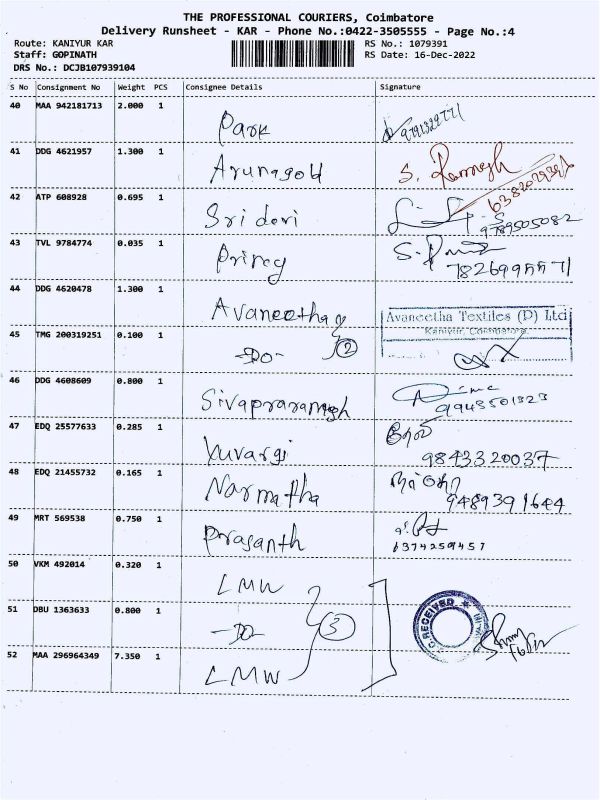 THE PROFESSIONAL COURIERS, Coimbatore
Delivery Runsheet - KAR - Phone No.:0422-3505555 - Page No.:4
Route: KANIYUR KAR RS No.: 1079391
Staff: GOPINATH RS Date: 16-Dec-2022
DRS No.: DCJB107939104
S No Consignment No Weight PCS Consignee Details Signature
40 MAA 942181713 2.000 1
Park
41 DDG 4621957 1.300 1
Arunagold S. Ramesh
42 ATP 608928 0.695 1
Sri devi 9789505082
43 TVL 9784774 0.035 1
7826995571
44 DDG 4620478 1.300 1
Avaneetha Avaneetha Textiles (P) Ltd
Kaniyur, Coimbatore.
45 TMG 200319251 0.100 1
-DO- 2
46 DDG 4608609 0.800 1
9943501323
47 EDQ 25577633 0.285 1
Yuvargi 9843320037
48 EDQ 21455732 0.165 1
Narmatha 9489391644
49 MRT 569538 0.750 1
Prasanth 6374259457
50 VKM 492014 0.320 1
LMW
51 DBU 1363633 0.800 1
-DO- 3 RECEIVED
52 MAA 296964349 7.350 1
LMW